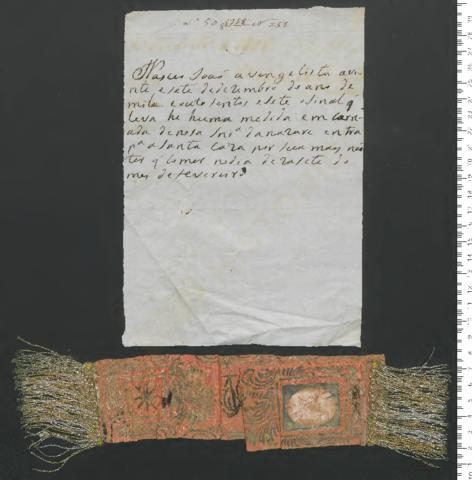 Nº 50 1718 251
Nasceu Joaõ avengelista avi
nte esete dedezembro doano de
mil e outo sentos esete osinal q̃
leva he huma medida em carn
ada denosa Snrª danazare entra
pª asanta Caza por sua may naõ
ter q̃ comer nodia dezasete do
mes defevereiro